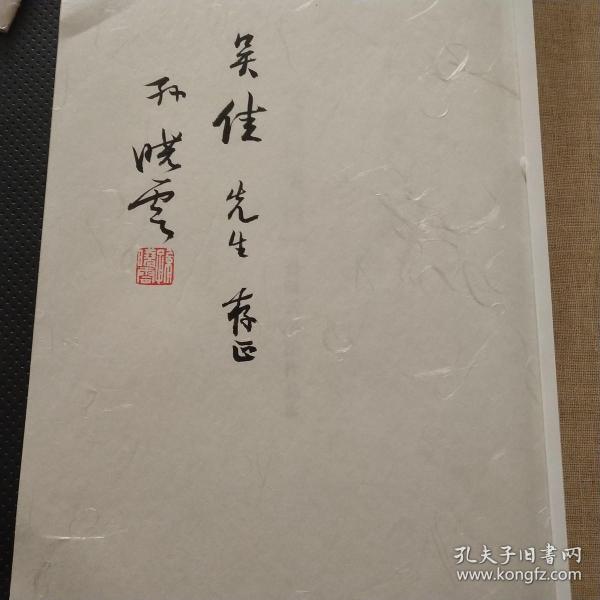 吴佳先生存正
孙晓云
孔夫子旧书网
www.kongfz.com